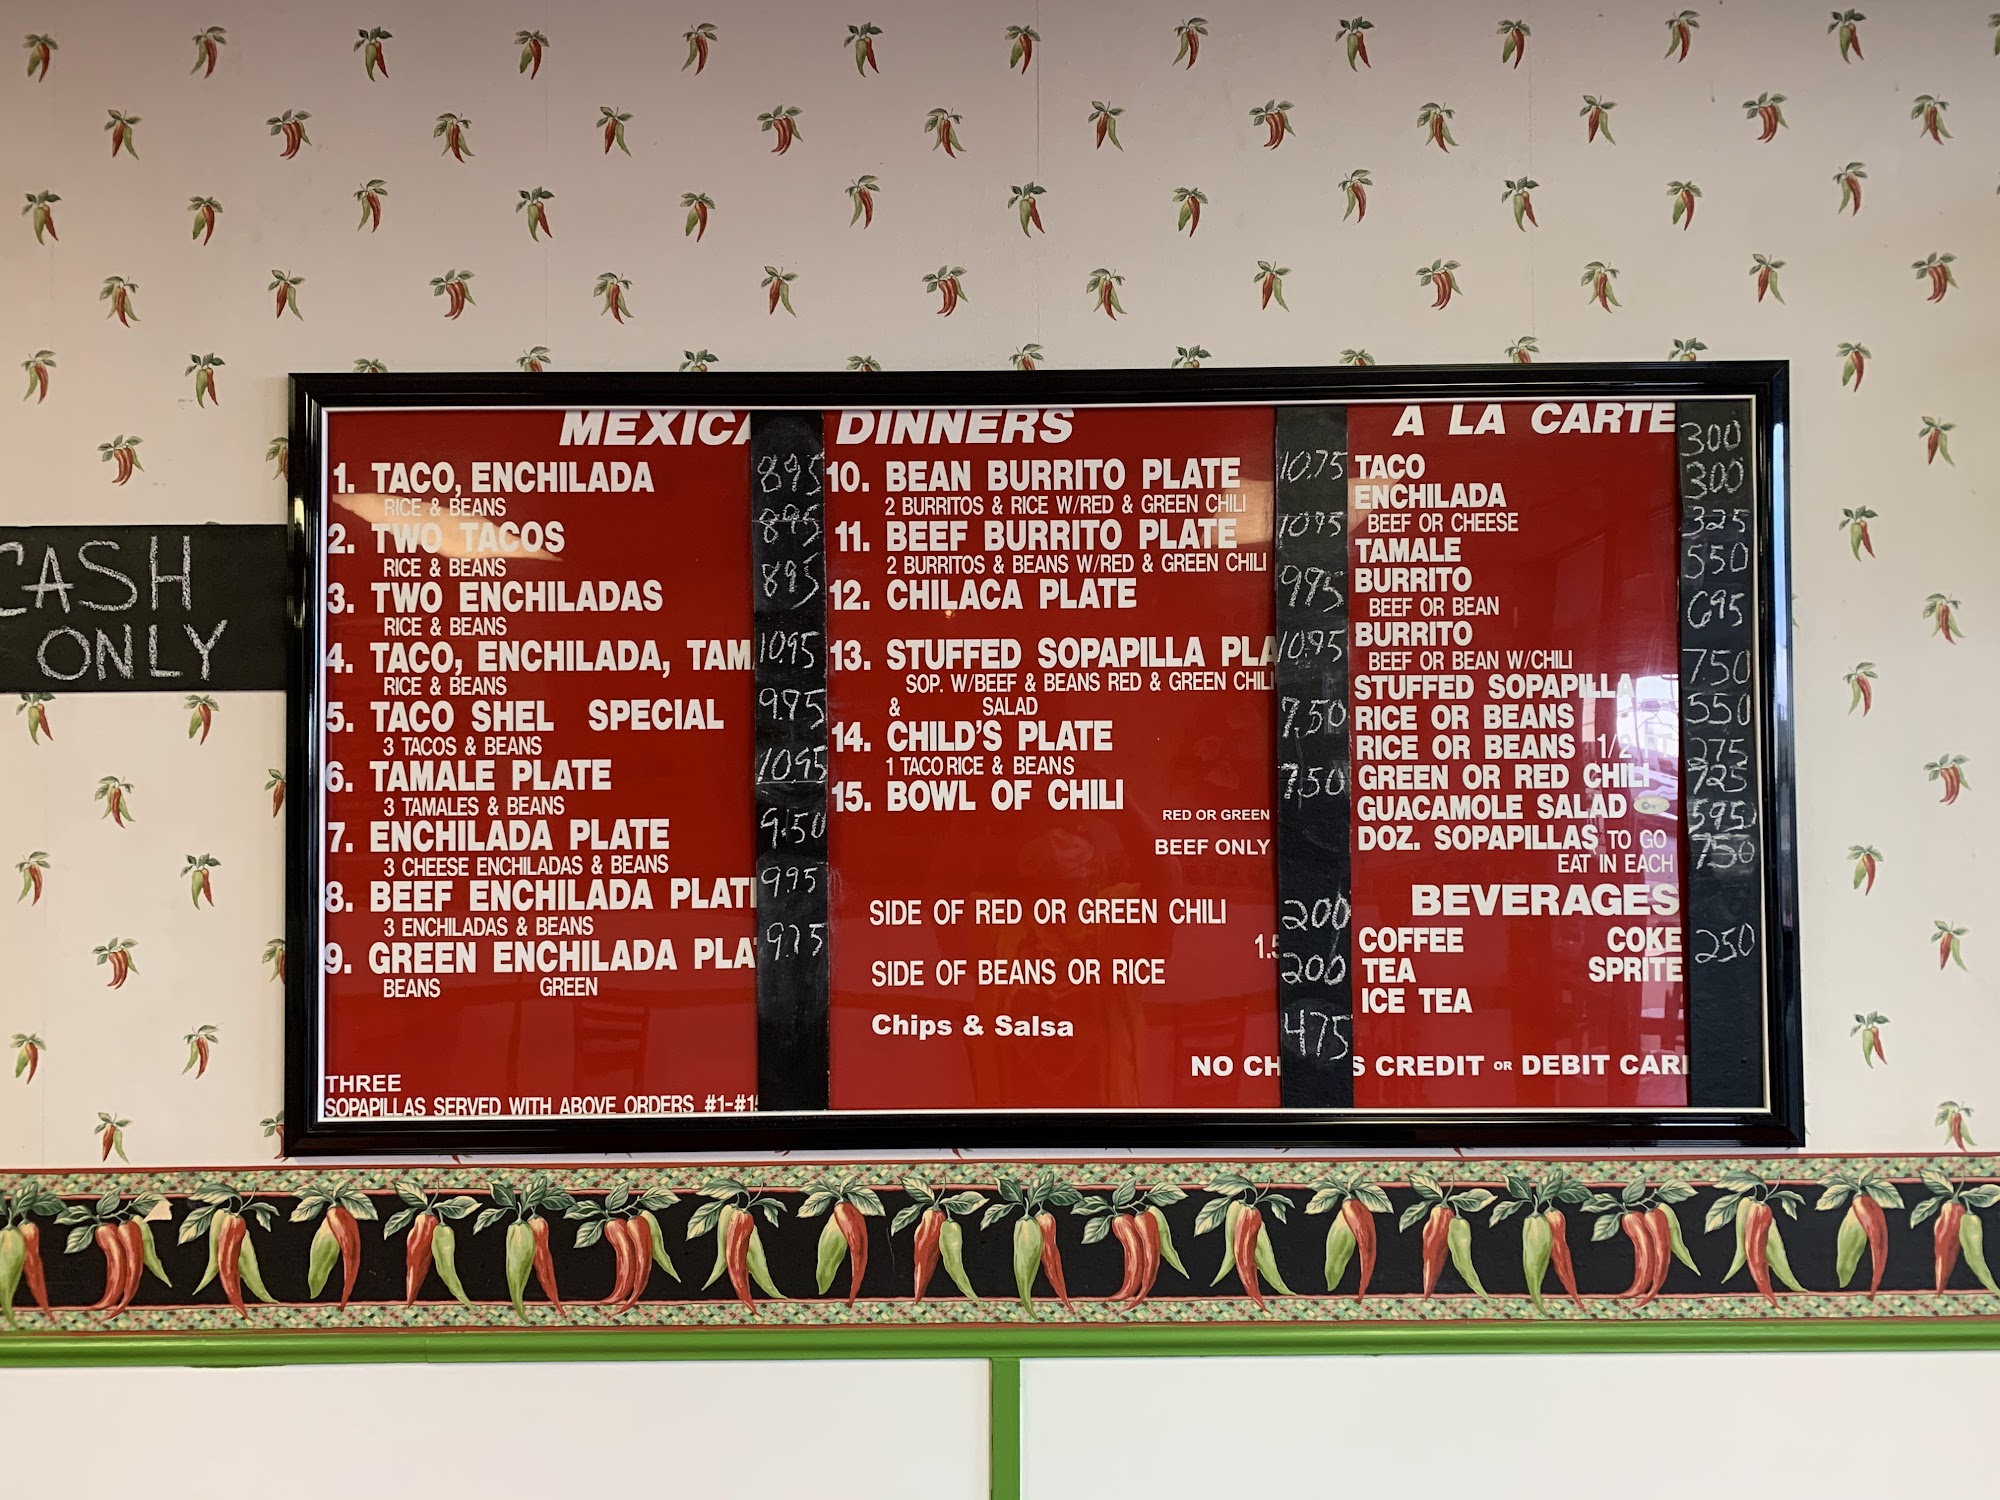 CASH
ONLY
MEXICA
1. TACO, ENCHILADA 895
RICE & BEANS
2. TWO TACOS 895
RICE & BEANS
3. TWO ENCHILADAS 895
RICE & BEANS
4. TACO, ENCHILADA, TAM 1095
RICE & BEANS
5. TACO SHEL SPECIAL 9.95
3 TACOS & BEANS
6. TAMALE PLATE 1095
3 TAMALES & BEANS
7. ENCHILADA PLATE 9.50
3 CHEESE ENCHILADAS & BEANS
8. BEEF ENCHILADA PLAT 995
3 ENCHILADAS & BEANS
9. GREEN ENCHILADA PLA
BEANS GREEN
THREE
SOPAPILLAS SERVED WITH ABOVE ORDERS #1-#15
DINNERS
10. BEAN BURRITO PLATE
2 BURRITOS & RICE W/RED & GREEN CHILI
11. BEEF BURRITO PLATE 1095
2 BURRITOS & BEANS W/RED & GREEN CHILI
12. CHILACA PLATE 995
13. STUFFED SOPAPILLA PLA 10.95
SOP. W/BEEF & BEANS RED & GREEN CHILI
& SALAD
14. CHILD'S PLATE 7.50
1 TACO RICE & BEANS
15. BOWL OF CHILI 7.50
RED OR GREEN
BEEF ONLY
SIDE OF RED OR GREEN CHILI 200
1.5
SIDE OF BEANS OR RICE 200
Chips & Salsa 475
NO CH S CREDIT OR DEBIT CAR
A LA CARTE
TACO 300
ENCHILADA 300
BEEF OR CHEESE
TAMALE 325
BURRITO 550
BEEF OR BEAN
BURRITO 695
BEEF OR BEAN W/CHILI
STUFFED SOPAPILLA 750
RICE OR BEANS 550
RICE OR BEANS 1/2 275
GREEN OR RED CHILI 725
GUACAMOLE SALAD 595
DOZ. SOPAPILLAS TO GO 750
EAT IN EACH
BEVERAGES
COFFEE COKE 250
TEA SPRITE
ICE TEA